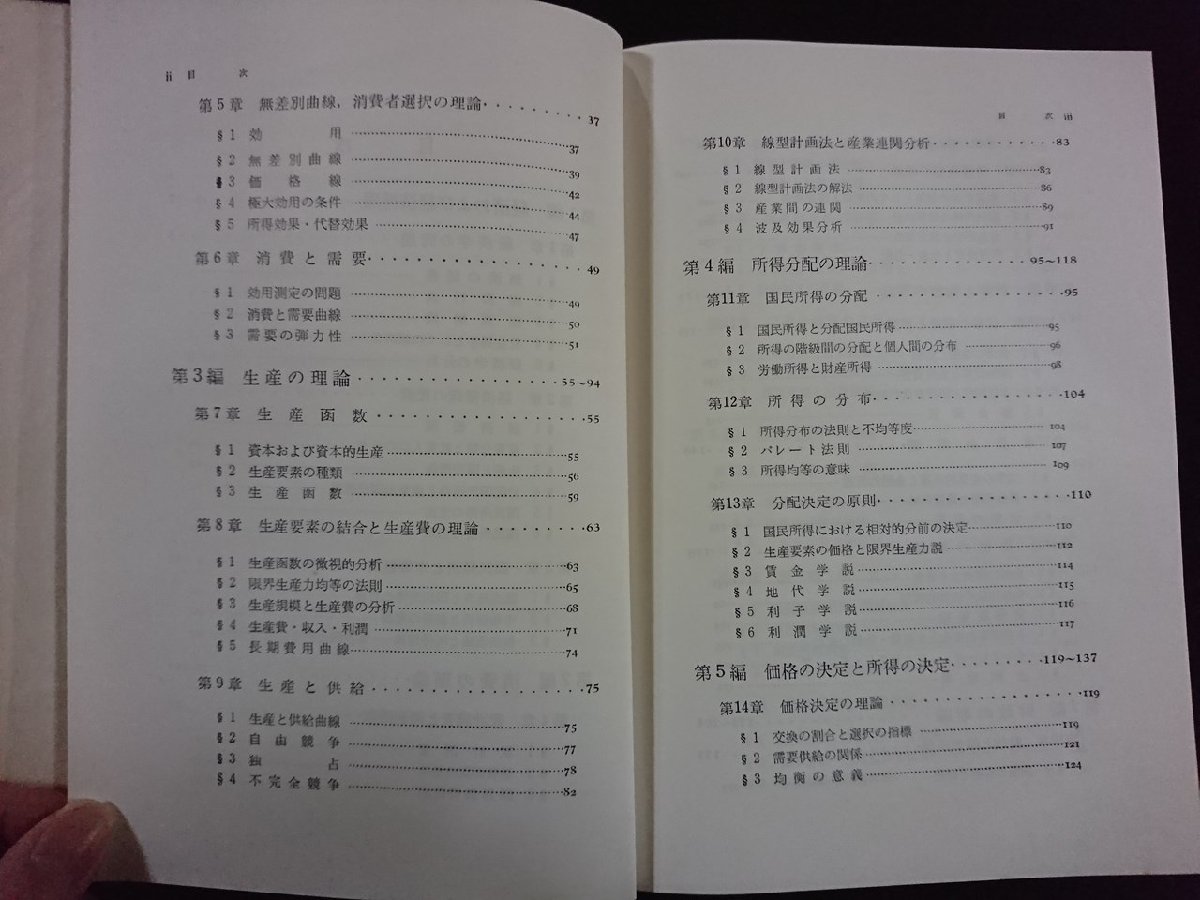 ii 目 次
第5章 無差別曲線，消費者選択の理論・・・・・・・37
§1 効用……………37
§2 無差別曲線……………39
§3 価格線……………42
§4 極大効用の条件……………44
§5 所得効果・代替効果……………47
第6章 消費と需要・・・・・・・49
§1 効用測定の問題……………49
§2 消費と需要曲線……………50
§3 需要の弾力性……………51
第3編 生産の理論・・・・・・・55~94
第7章 生産函数・・・・・・・55
§1 資本および資本的生産……………55
§2 生産要素の種類……………56
§3 生産函数……………59
第8章 生産要素の結合と生産費の理論・・・・・・・63
§1 生産函数の微視的分析……………63
§2 限界生産力均等の法則……………65
§3 生産規模と生産費の分析……………68
§4 生産費・収入・利潤……………71
§5 長期費用曲線……………74
第9章 生産と供給・・・・・・・75
§1 生産と供給曲線……………75
§2 自由競争……………77
§3 独占……………78
§4 不完全競争……………82
目 次 iii
第10章 線型計画法と産業連関分析・・・・・・・83
§1 線型計画法……………83
§2 線型計画法の解法……………86
§3 産業間の連関……………89
§4 波及効果分析……………91
第4編 所得分配の理論・・・・・・・95~118
第11章 国民所得の分配・・・・・・・95
§1 国民所得と分配国民所得……………95
§2 所得の階級間の分配と個人間の分布……………96
§3 労働所得と財産所得……………98
第12章 所得の分布・・・・・・・104
§1 所得分布の法則と不均等度……………104
§2 パレート法則……………107
§3 所得均等の意味……………109
第13章 分配決定の原則・・・・・・・110
§1 国民所得における相対的分前の決定……………110
§2 生産要素の価格と限界生産力説……………112
§3 賃金学説……………114
§4 地代学説……………115
§5 利子学説……………116
§6 利潤学説……………117
第5編 価格の決定と所得の決定・・・・・・・119~137
第14章 価格決定の理論・・・・・・・119
§1 交換の割合と選択の指標……………119
§2 需要供給の関係……………121
§3 均衡の意義……………124